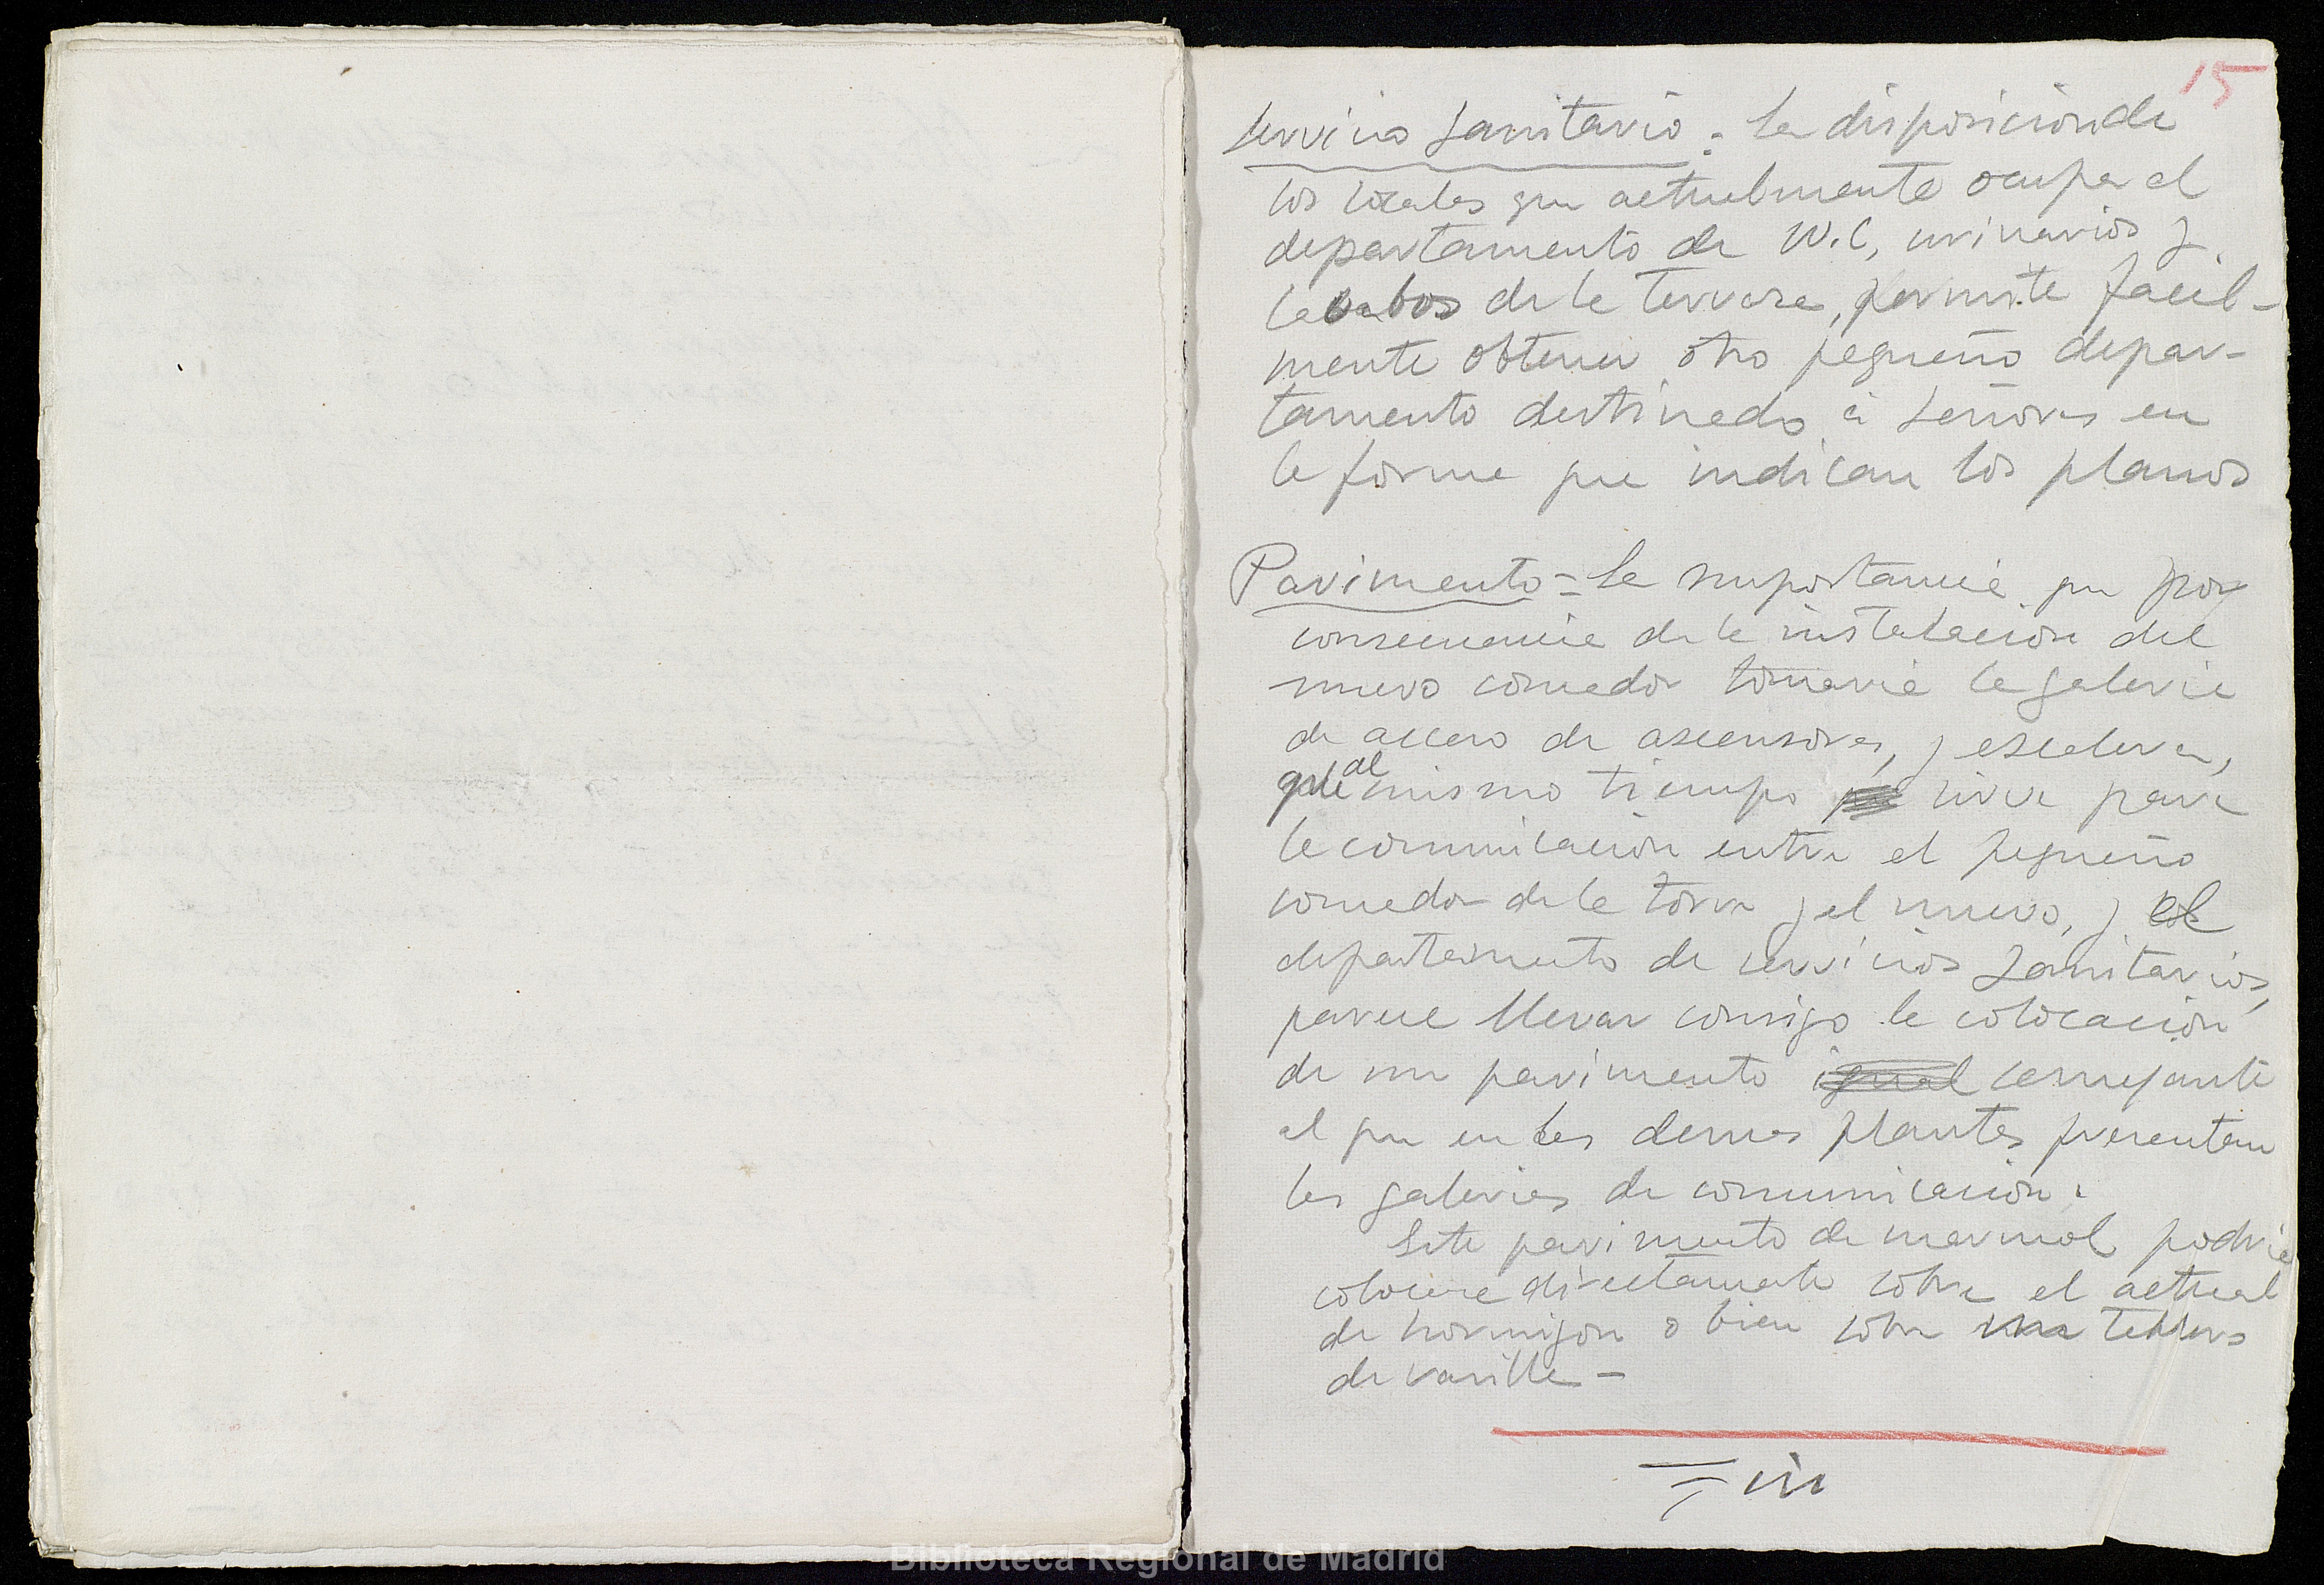 15
Servicio Sanitario = La disposicion de
los locales que actualmente ocupa el
departamento de W.C, urinarios y
lavabos de la terraza, permite facil-
mente obtener otro pequeño depar-
tamento destinado á señoras en
la forma que indican los planos
Pavimento = La importancia que por
consecuencia de la instalacion del
nuevo comedor tomaria la galeria
de acceso de ascensores, y escalera,
que al mismo tiempo sirve para
la comunicacion entre el pequeño
comedor de la torre y el nuevo, y el
departamento de servicios sanitarios,
parece llevar consigo la colocacion
de un pavimento igual semejante
al que en las demas plantas presentan
las galerias de comunicacion.
Este pavimento de marmol podria
colocarse directamente sobre el actual
de hormigon o bien sobre una tablero
de rasilla -
Fin
Biblioteca Regional de Madrid